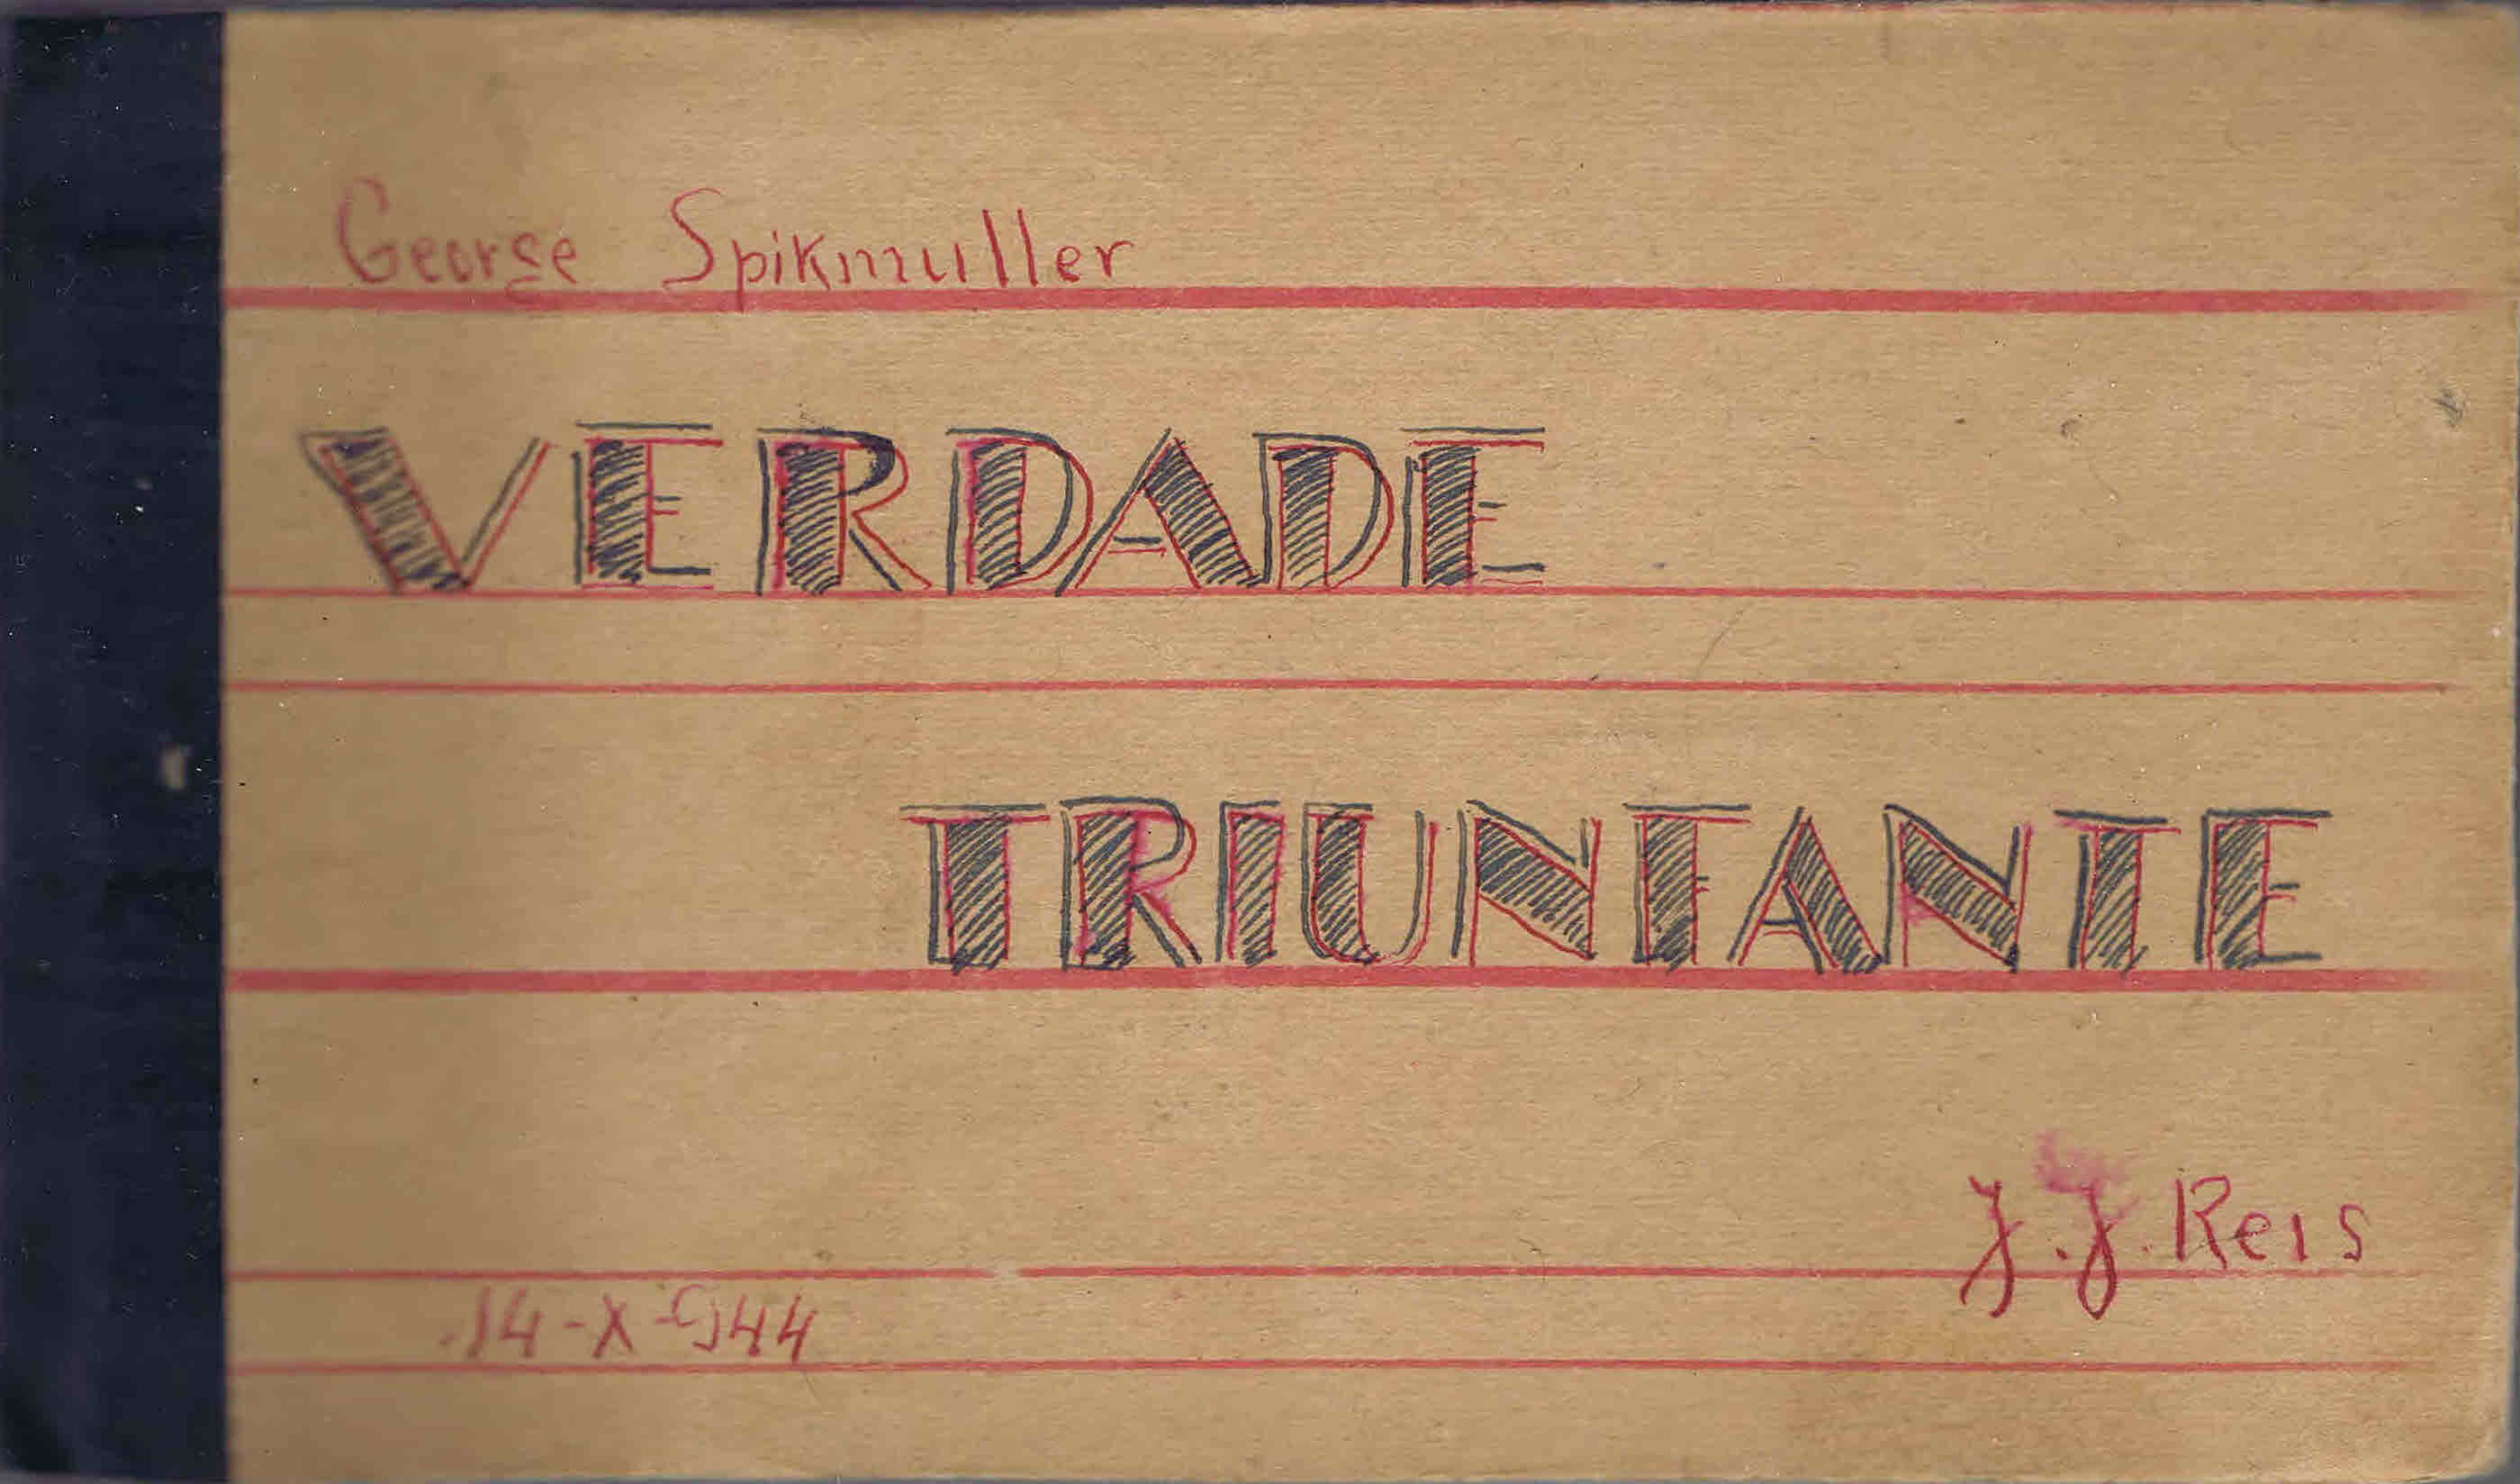 George Spikmuller
VERDADE
TRIUNFANTE
J.J. Reis
14-X-944